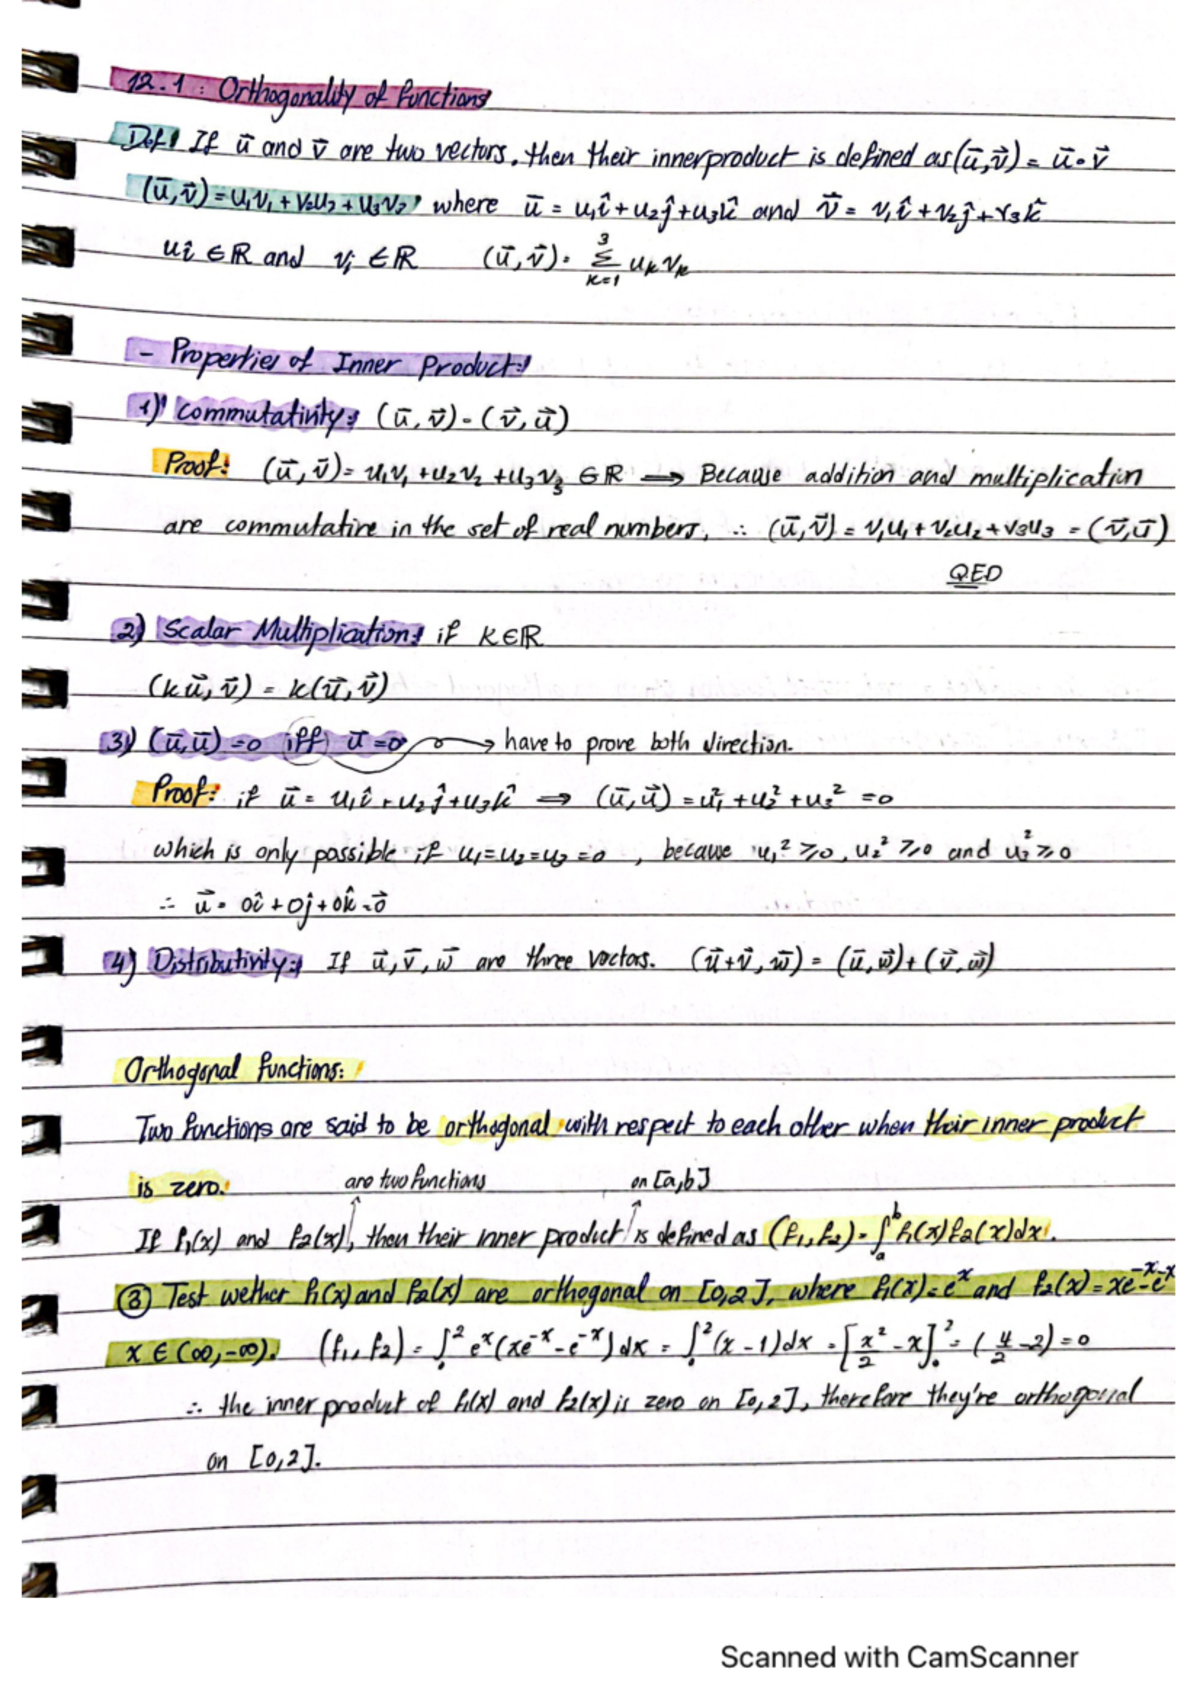 12.1 : Orthogonality of functions
Def! If ū and v̄ are two vectors, then their innerproduct is defined as (ū,v⃗) = ū•v⃗
(ū,v⃗) = u₁v₁ + v₂u₂ + u₃v₃ where ū = u₁î + u₂ĵ + u₃k̂ and v⃗ = v₁î + v₂ĵ + v₃k̂
uî ∈ ℝ and vⱼ ∈ ℝ (ū,v⃗) = Σ_{k=1}^{3} uₖvₖ
- Properties of Inner Product:
1) Commutativity: (ū,v⃗) = (v⃗,u⃗)
Proof: (u⃗,v̄) = u₁v₁ + u₂v₂ + u₃v₃ ∈ ℝ ⟹ Because addition and multiplication
are commutative in the set of real numbers, ∴ (ū,v⃗) = v₁u₁ + v₂u₂ + v₃u₃ = (v⃗,ū)
QED
2) Scalar Multiplication: if k∈ℝ
(ku⃗,v⃗) = k(u⃗,v⃗)
3) (ū,ū) = 0 iff ū = 0 → have to prove both direction.
Proof: if u⃗ = u₁î + u₂ĵ + u₃k̂ ⟹ (u⃗,u⃗) = u₁² + u₂² + u₃² = 0
which is only possible if u₁=u₂=u₃=0 , because u₁² ⩾ 0, u₂² ⩾ 0 and u₃² ⩾ 0
∴ u⃗ = 0î + 0ĵ + 0k̂ = 0⃗
4) Distributivity: If u⃗, v⃗, w⃗ are three vectors. (u⃗+v⃗,w⃗) = (ū,w⃗) + (v⃗,w⃗)
Orthogonal functions:
Two functions are said to be orthogonal with respect to each other when their inner product
is zero. are two functions on [a,b]
If f₁(x) and f₂(x), then their inner product is defined as (f₁,f₂) = ∫ₐᵇ f₁(x)f₂(x)dx.
③ Test wether f₁(x) and f₂(x) are orthogonal on [0,2], where f₁(x) = eˣ and f₂(x) = xe⁻ˣ-e⁻ˣ
x ∈ (∞,-∞). (f₁,f₂) = ∫₀² eˣ(xe⁻ˣ - e⁻ˣ)dx = ∫₀² (x - 1)dx = [x²/2 - x]₀² = (4/2 - 2) = 0
∴ the inner product of f₁(x) and f₂(x) is zero on [0,2], therefore they're orthogonal
on [0,2].
Scanned with CamScanner